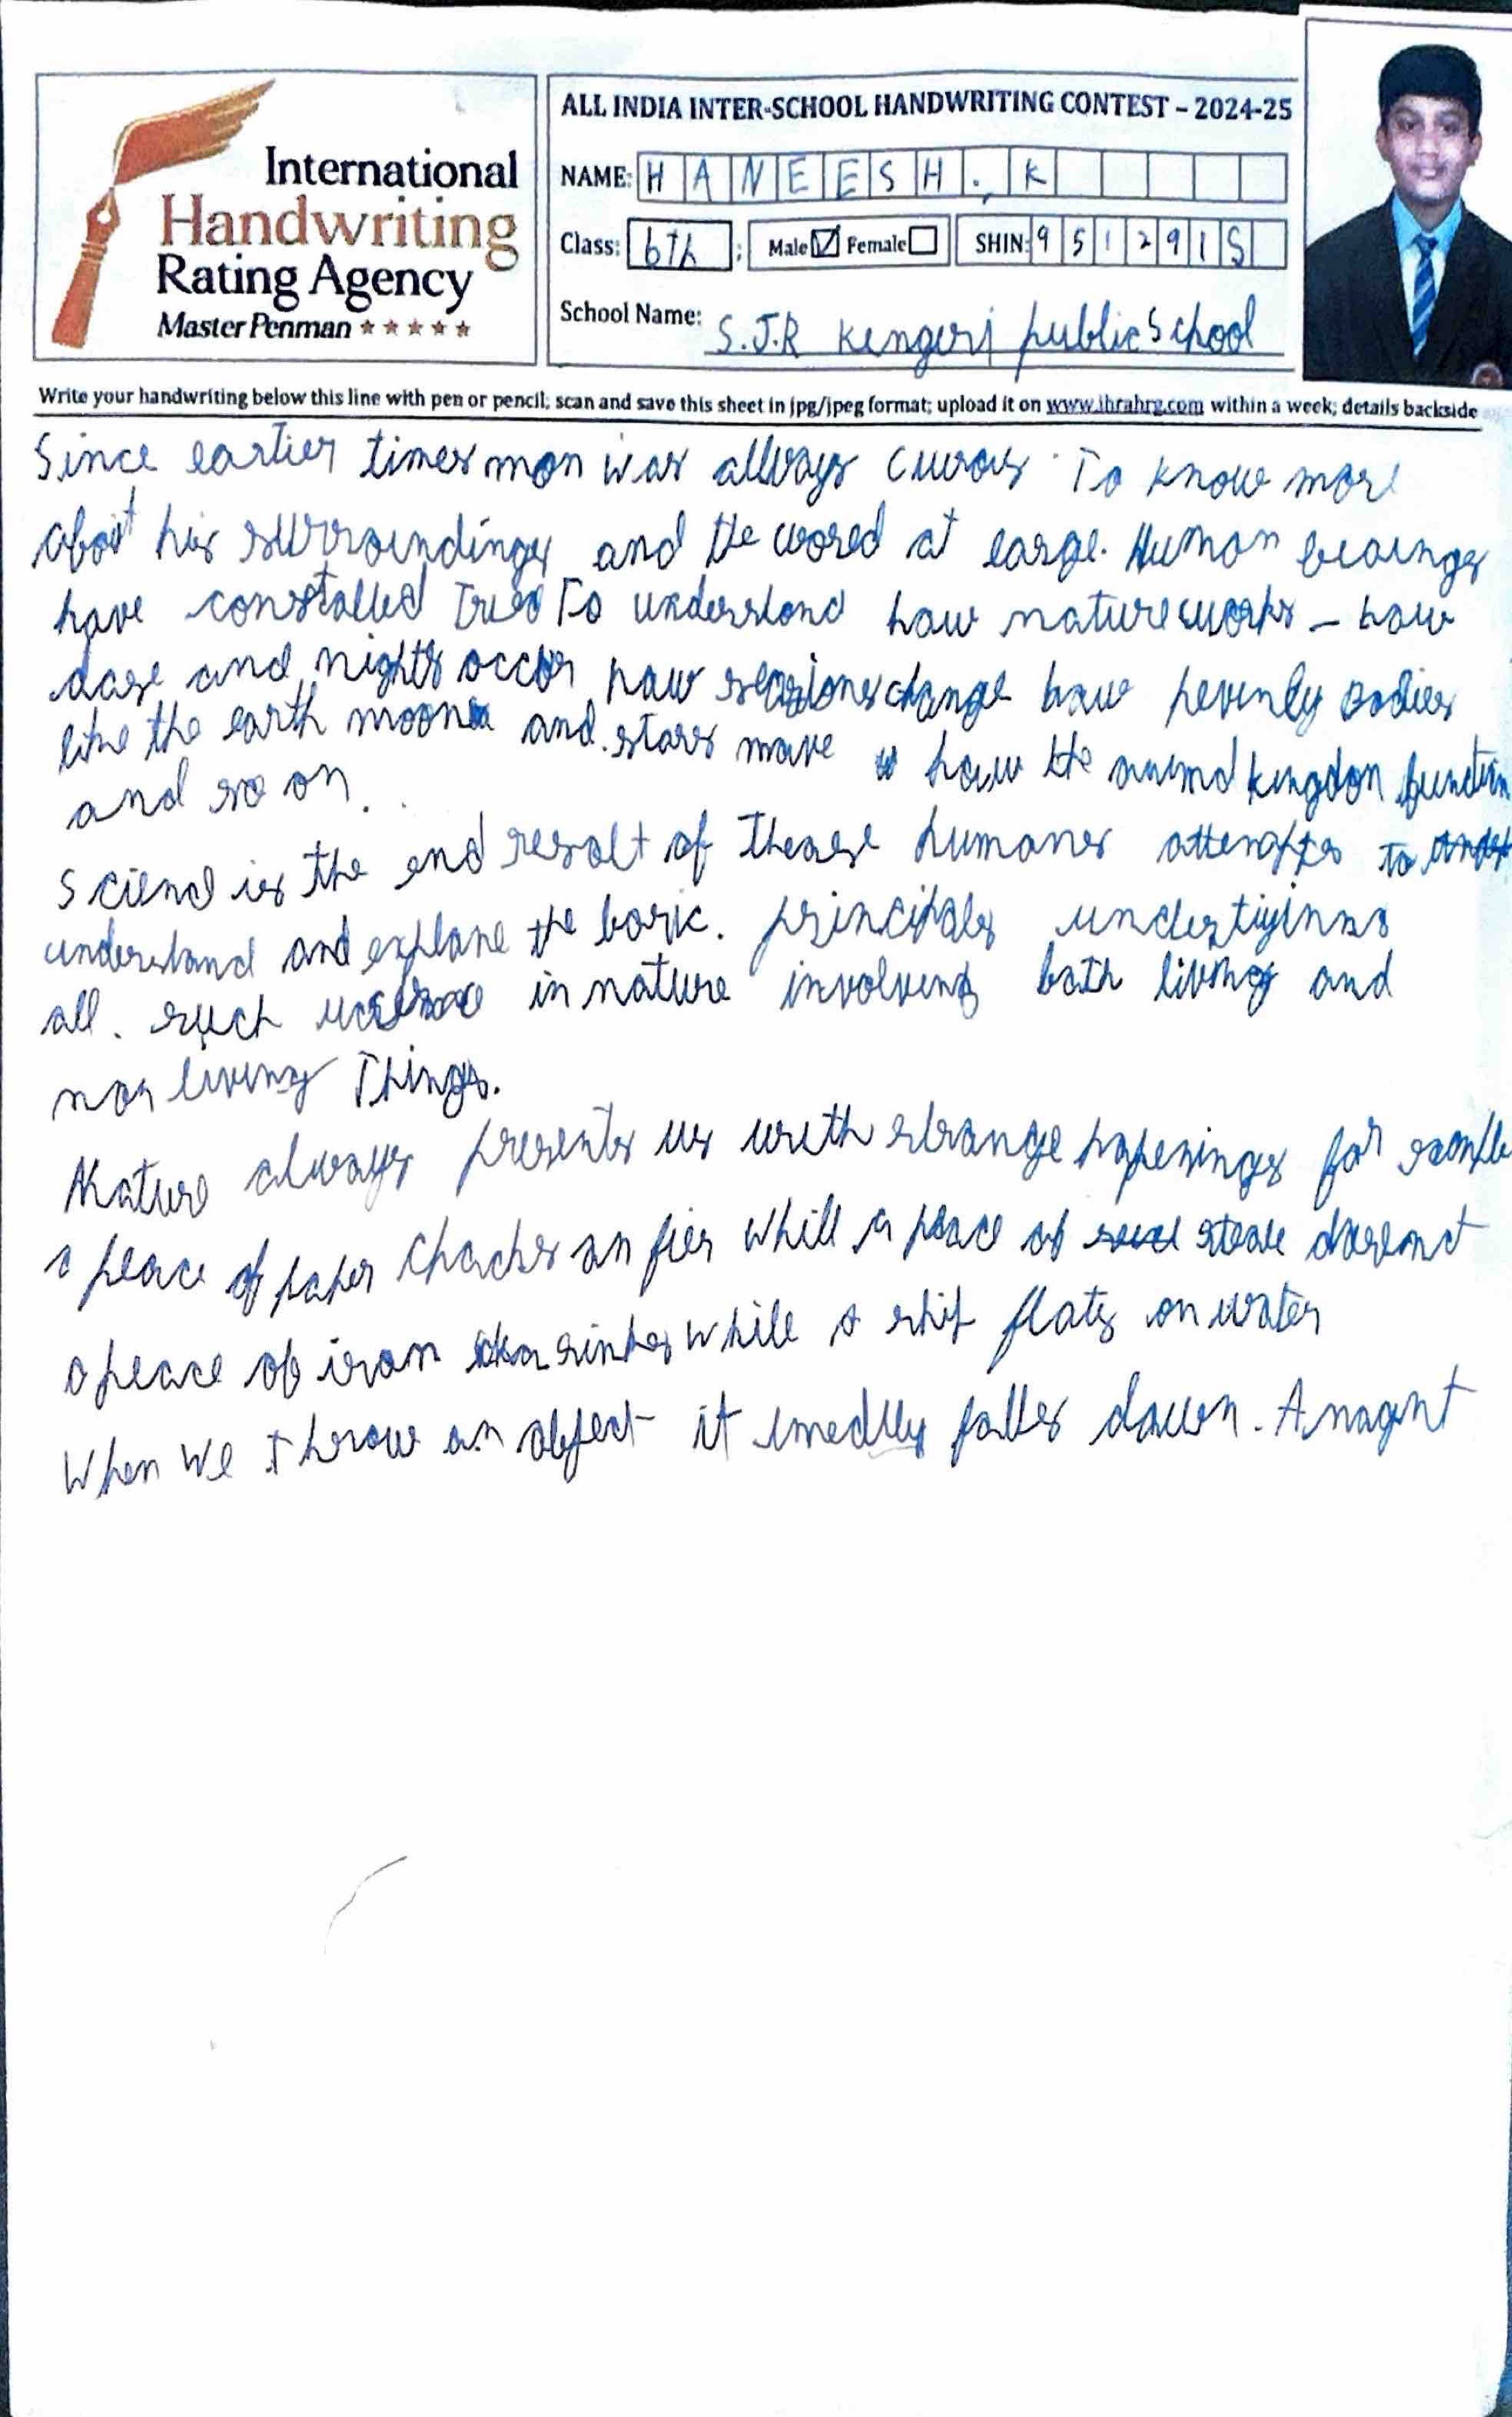 International
Handwriting
Rating Agency
Master Penman ★ ★ ★ ★ ★
ALL INDIA INTER-SCHOOL HANDWRITING CONTEST – 2024-25
NAME: HANEESH. K
Class: 6Th ; Male ☑ Female ☐ SHIN: 951291S
School Name: S.J.R Kengeri public School
Write your handwriting below this line with pen or pencil; scan and save this sheet in jpg/jpeg format; upload it on www.ihrahrg.com within a week; details backside
Since earlier times man was allways To know more
about his surroundings and the at large. Human
have Tried To understand how nature works – how
and nights occor how change how bodies
like the earth moon and stars move how the kingdon function
and so on.
is the end resolt of humanes to
understand and explane the principales
all. such in nature involving both living and
non living Things.
Nature always presents us with strange for
a peace of paper an fier whill a peace of
a peace of iron sinkes while a ship on water
When we throw an object it falles down. A